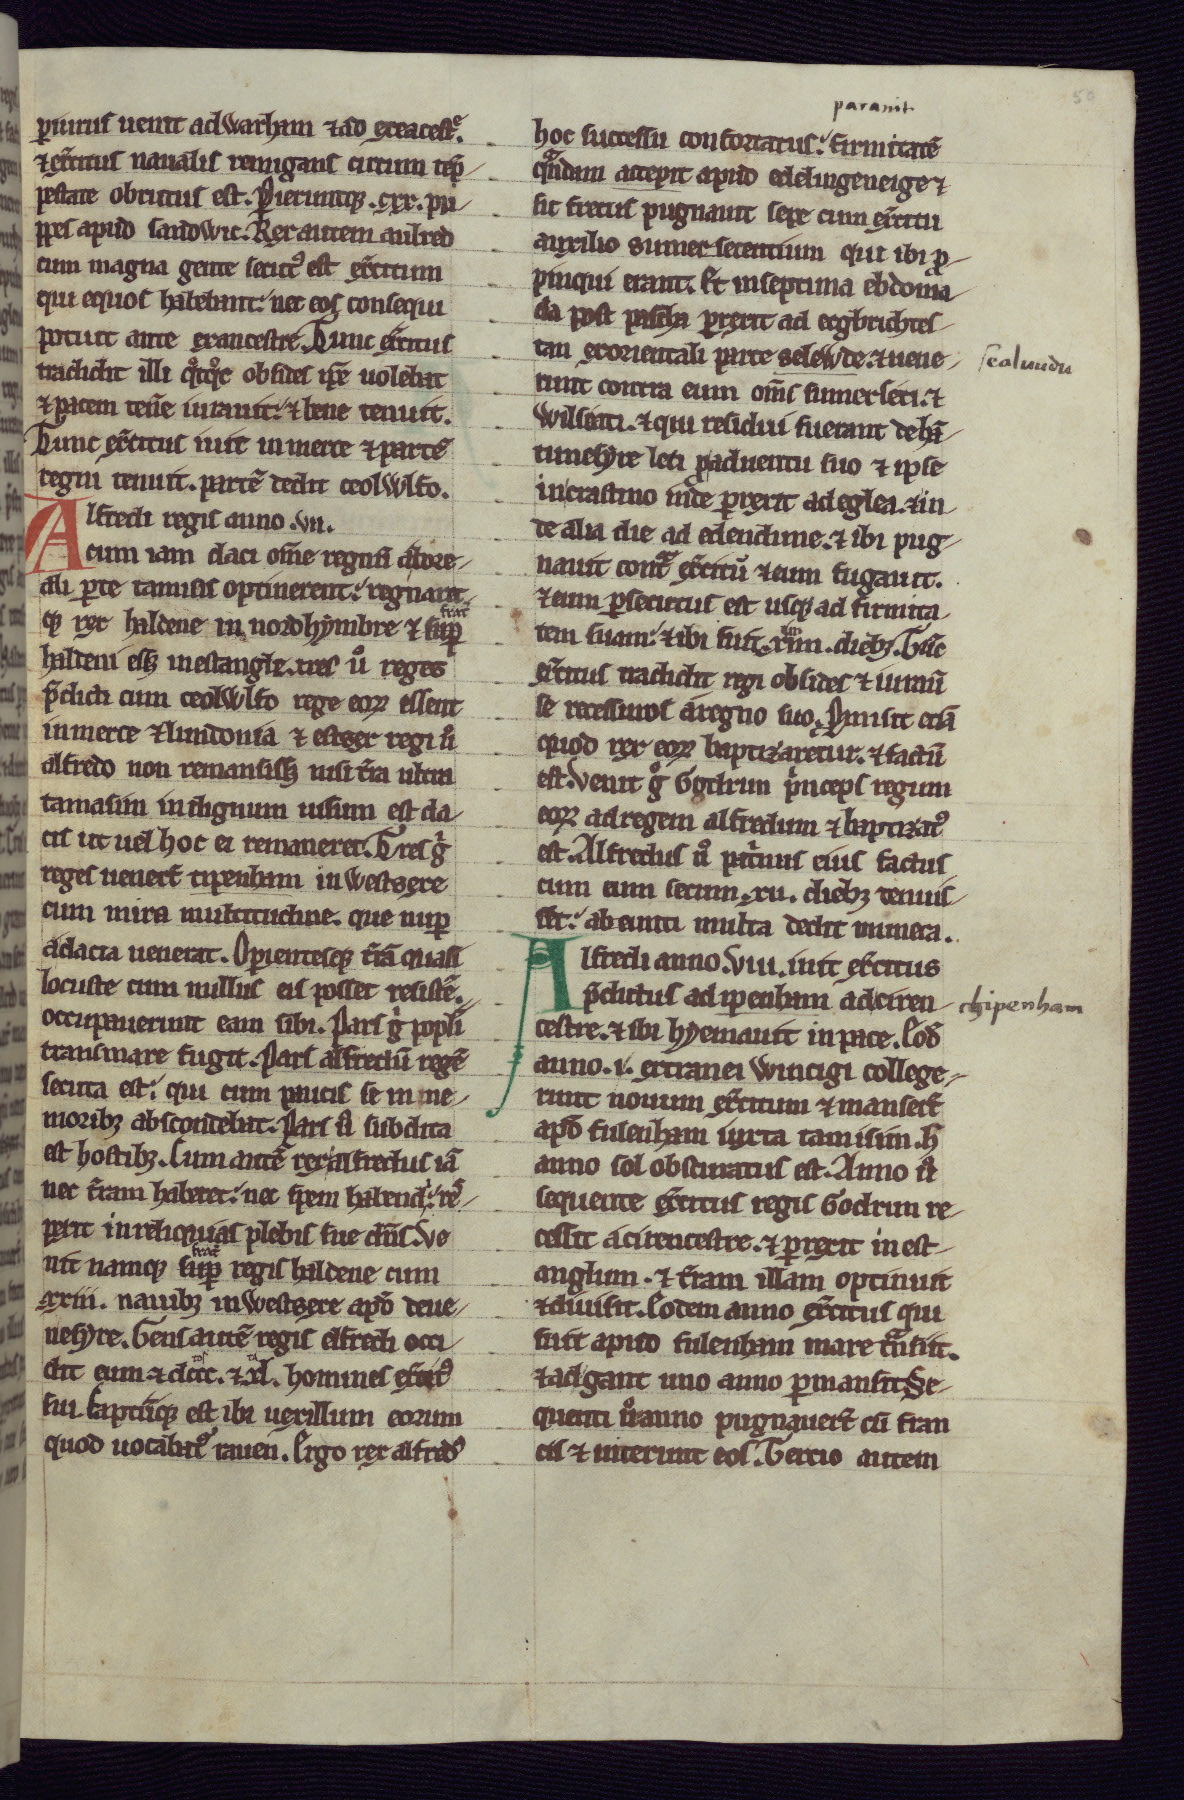 50
ꝑiurus uenit ad Warham ⁊ ad excacestr̄.
⁊ exc̄itus naualis remigans circum tēp-
pestate obrutus est. Perieruntqꝫ .cxx. pup-
pes apud sandwic. Rex autem aulred
cum magna gente secutꝰ est exc̄itum
qui equos habebant: nec eos consequi
potuit ante exancestre. Tunc exc̄itus
tradidit illi qͦtqͦt obsides ip̄e uolebat
⁊ pacem ten̄e iurauit: ⁊ bene tenuit.
Tunc exc̄itus iuit in merce ⁊ partē
regni tenuit. partē dedit ceolwlfo.
Alfredi regis anno .vii.
cum iam daci om̄e regnū ab bore-
ali ꝑte tamisis optinerent: regnaret
qꝫ rex haldene in nordhymbre ⁊ fraͭ
haldeni eēt in estangle. tres ū reges
p̄dicti cum ceolwlfo rege eoꝝ essent
in merce ⁊ lundonia ⁊ estsex regi ū
alfredo non remansisꝫ nisi t̄ra ultra
tamasim indignum uisum est da-
cis ut uel hoc ei remaneret. Tres g̊
reges uener̄t cipenham in westsexe
cum mira multitudine. que nup̄
a dacia uenerat. Operientesqꝫ t̄rā quasi
locuste cum nullus eis posset resistē.
occupauerunt eam sibi. Pars g̊ popl̄i
transmare fugit. Pars alfredum regē
secuta est: qui cum paucis se in ne-
moribꝫ abscondebat. Pars ū subdita
est hostibꝫ. Cum autē rex alfredus iā
nec t̄ram haberet: nec spem habendi: re-
petit in reliquias plebis sue dn̄s. Ve
nit namqꝫ fraͭ regis haldene cum
xxiii. nauibꝫ in westsexe apd̄ deue-
neshyre. Gens autē regis elfredi occi-
dit eum ⁊ dccc. ⁊ xl. homines exc̄itꝰ
sui. Captūqꝫ est ibi uexillum eorum
quod uocabatꝰ rauen. Ergo rex alfredꝰ
parauit
hoc successu confortatus: firmitatē
qͣndam accepit apud edelingeneige ⁊
sic fretus pugnauit sepe cum exc̄itu
auxilio sumersetentium qui ibi ꝓ-
pinqui erant. Et in septima ebdoma
da post pascha ꝑrexit ad ecgbrichtes-
tan ex orientali parte selewde. ⁊ uene-
runt contra eum om̄s sumerseti. ⁊
wilseati. ⁊ qui residui fuerant de hā-
tunesyre leti ꝓ aduentu suo ⁊ ipse
in crastino inde ꝑrexit ad eglea. ⁊ in
de alia die ad edendune. ⁊ ibi pug-
nauit contͣ exc̄itū ⁊ eum fugauit.
⁊ eum ꝑsecutus est usqꝫ ad firmita
tem suam: ⁊ ibi fuit .xiiii. diebꝫ. Tūc
exc̄itus tradidit regi obsides ⁊ iurauit
se recessuros a regno suo. Promisit eciā
quod rex eoꝝ baptizaretur. ⁊ factū
est. Venit g̊ Godrun p̄nceps regum
eoꝝ ad regem alfredum ⁊ baptizatꝰ
est. Alfredus ū patͥnus eius factus
cum eum secum .xii. diebꝫ tenuis-
set: abeunti multa dedit munera.
Alfredi anno .viii. iuit exc̄itus
p̄dictus a cipenham ad ciren-
cestre. ⁊ ibi hyemauit in pace. Eod̄
anno .i. extranei Wincigi college-
runt nouum exc̄itum ⁊ manser̄t
apd̄ fulenham iuxta tamisim. H̄
anno sol obscuratus est. Anno ū
sequente exc̄itus regis Godrun re-
cessit a cirencestre. ⁊ ꝑrexit in est-
anglum. ⁊ t̄ram illam optinuit
⁊ diuisit. Eodem anno exc̄itus qui
fuit apud fulenham mare tͣnsiit.
⁊ ad gant uno anno ꝑmansit. Se-
quenti ū anno pugnauer̄t cū fran
cis ⁊ uicerunt eos. Tercio autem
sealuudu
chipenham